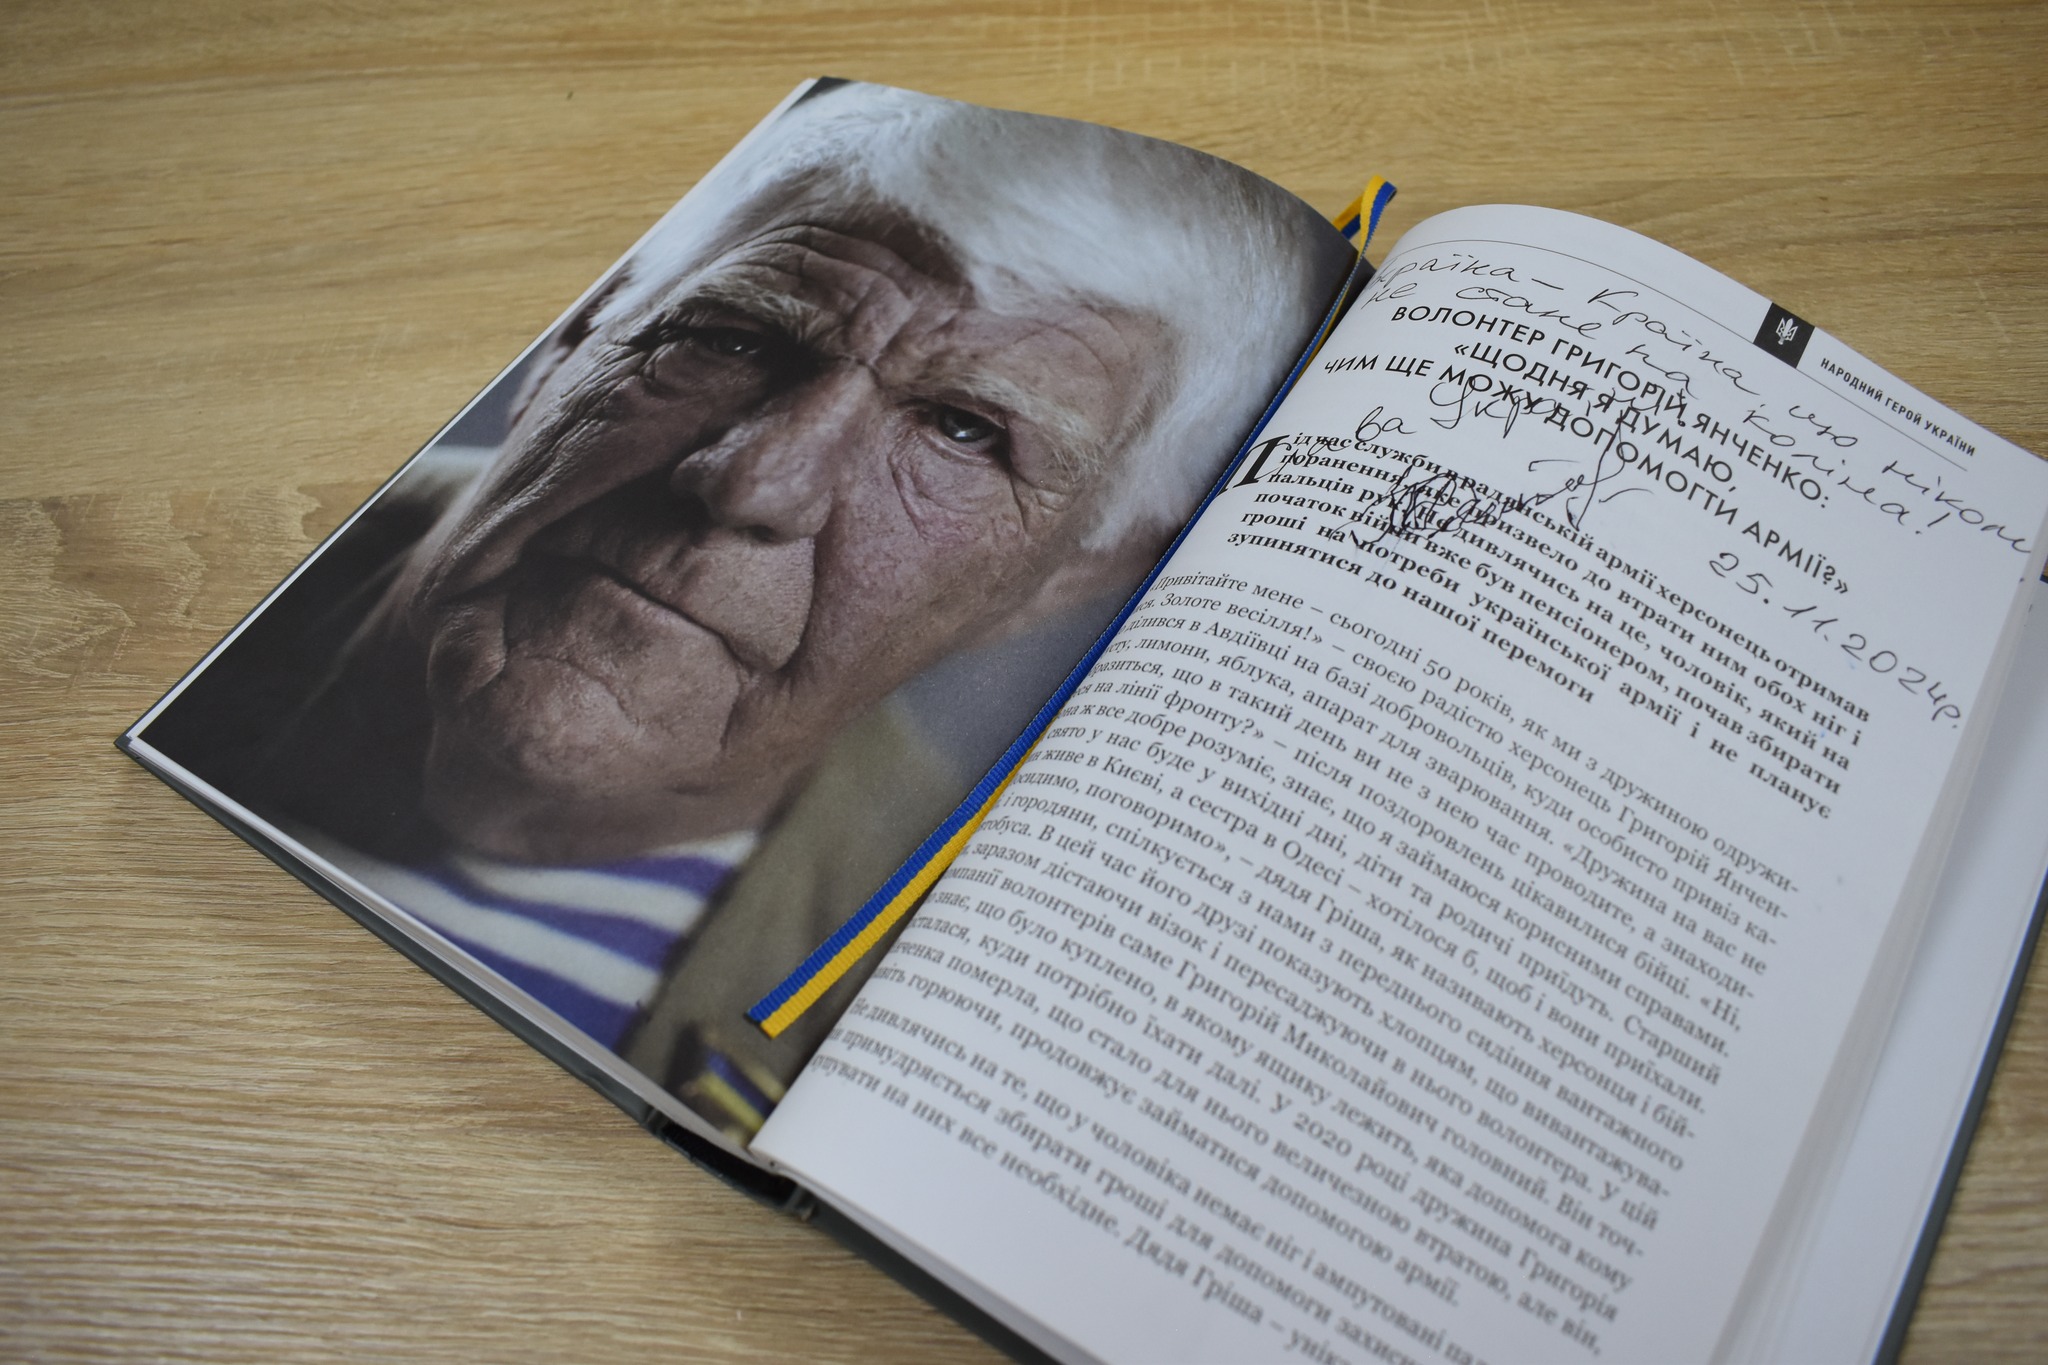 НАРОДНИЙ ГЕРОЙ УКРАЇНИ
Україна – країна, що ніколи
не стане на коліна!
ВОЛОНТЕР ГРИГОРІЙ ЯНЧЕНКО:
«ЩОДНЯ Я ДУМАЮ,
ЧИМ ЩЕ МОЖУ ДОПОМОГТИ АРМІЇ?»
25.11.2024р.
ід час служби в радянській армії херсонець отримав
поранення, яке призвело до втрати ним обох ніг і
пальців рук. Не дивлячись на це, чоловік, який на
початок війни вже був пенсіонером, почав збирати
гроші на потреби української армії і не планує
зупинятися до нашої перемоги
«Привітайте мене – сьогодні 50 років, як ми з дружиною одружи-
лися. Золоте весілля!» – своєю радістю херсонець Григорій Янчен-
ділився в Авдіївці на базі добровольців, куди особисто привіз ка-
пусту, лимони, яблука, апарат для зварювання. «Дружина на вас не
образиться, що в такий день ви не з нею час проводите, а знаходи-
теся на лінії фронту?» – після поздоровлень цікавилися бійці. «Ні,
вона ж все добре розуміє, знає, що я займаюся корисними справами.
свято у нас буде у вихідні дні, діти та родичі приїдуть. Старший
живе в Києві, а сестра в Одесі – хотілося б, щоб і вони приїхали.
посидимо, поговоримо», – дядя Гріша, як називають херсонця і бій-
і городяни, спілкується з нами з переднього сидіння вантажного
автобуса. В цей час його друзі показують хлопцям, що вивантажува-
заразом дістаючи візок і пересаджуючи в нього волонтера. У цій
компанії волонтерів саме Григорій Миколайович головний. Він точ-
знає, що було куплено, в якому ящику лежить, яка допомога кому
дісталася, куди потрібно їхати далі. У 2020 році дружина Григорія
Янченка померла, що стало для нього величезною втратою, але він,
навіть горюючи, продовжує займатися допомогою армії.
Не дивлячись на те, що у чоловіка немає ніг і ампутовані
примудряється збирати гроші для допомоги
купувати на них все необхідне. Дядя Гріша –